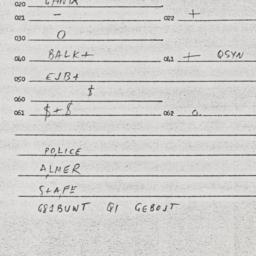 020
021 - 022 +
030 0
040 BALK+ 041 + QSYN
050 EJB+
060 $
061 $+$ 062 0.
POLICE
ALMER
SLAFE
GEBOST